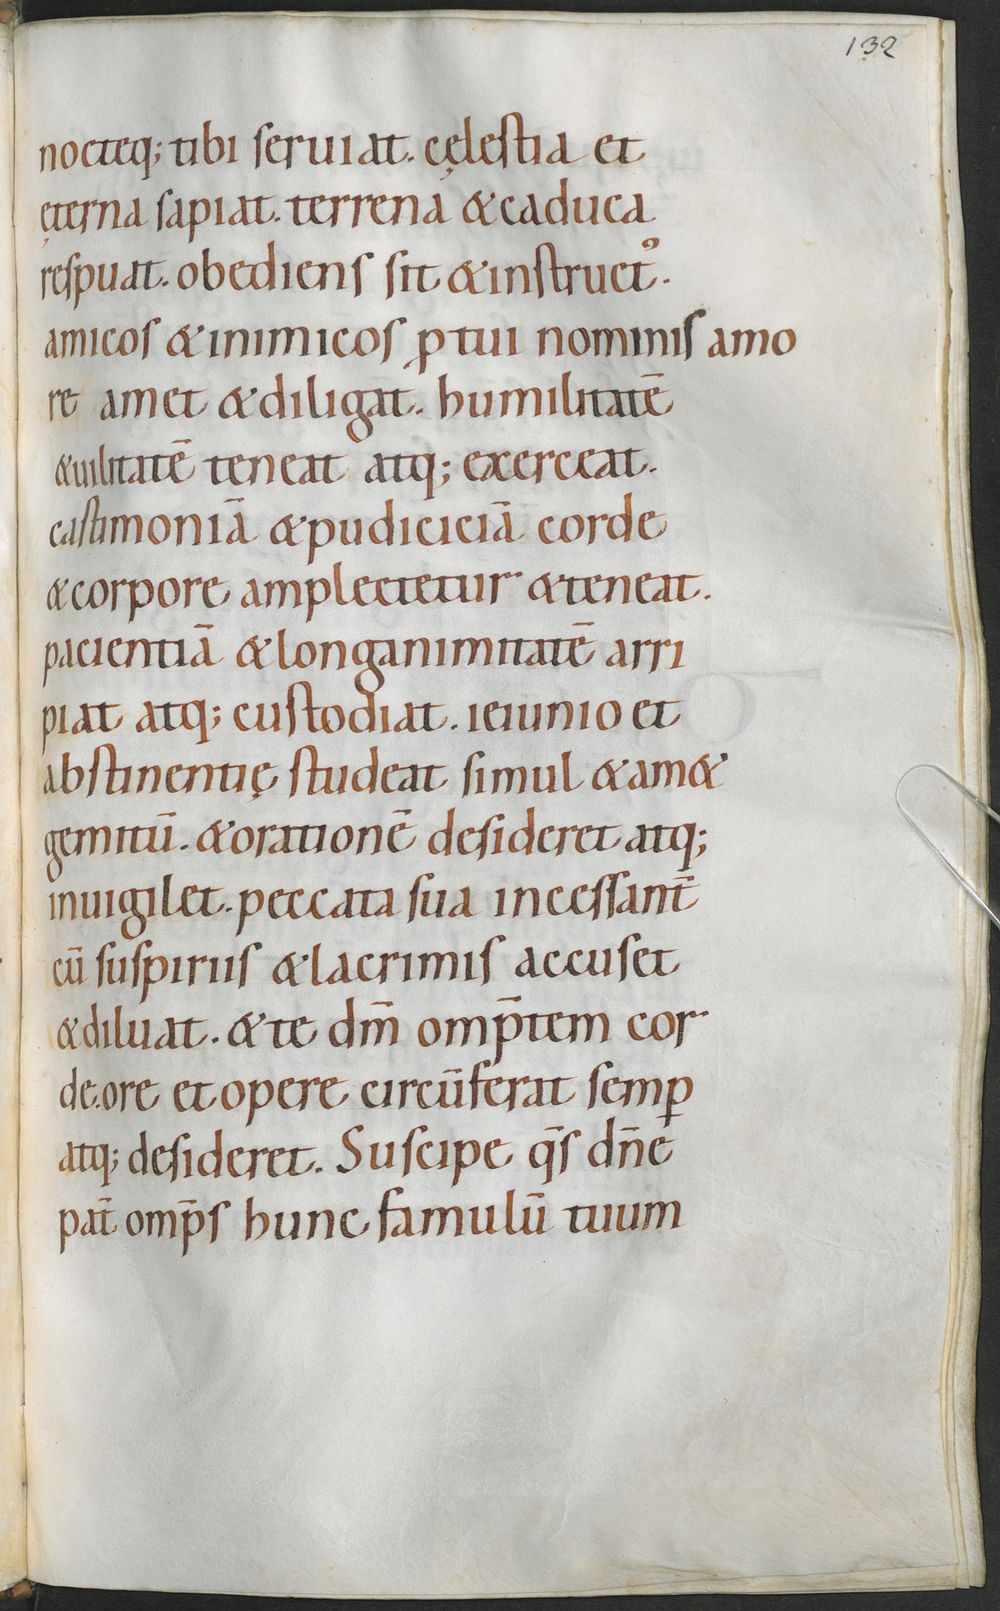 132
nocteq; tibi seruiat. cęlestia et
ęterna sapiat. terrena & caduca
respuat. obediens sit & instruct᾿.
amicos & inimicos ꝓ tui nominis amo
re amet & diligat. humilitatē
& uilitatē teneat atq; exerceat.
castimoniā & pudiciciā corde
& corpore amplectetur & teneat.
pacientiā & longanimitatē arri
piat atq; custodiat. ieiunio et
abstinentię studeat simul & am&
gemitū. & orationē desideret atq;
inuigilet. peccata sua incessant̄
cū suspiriis & lacrimis accuset
& diluat. & te dm̄ omp̄tem cor
de. ore et opere circūferat semꝑ
atq; desideret. Suscipe q̄s dn̄e
pat̄ omp̄s hunc famulū tuum